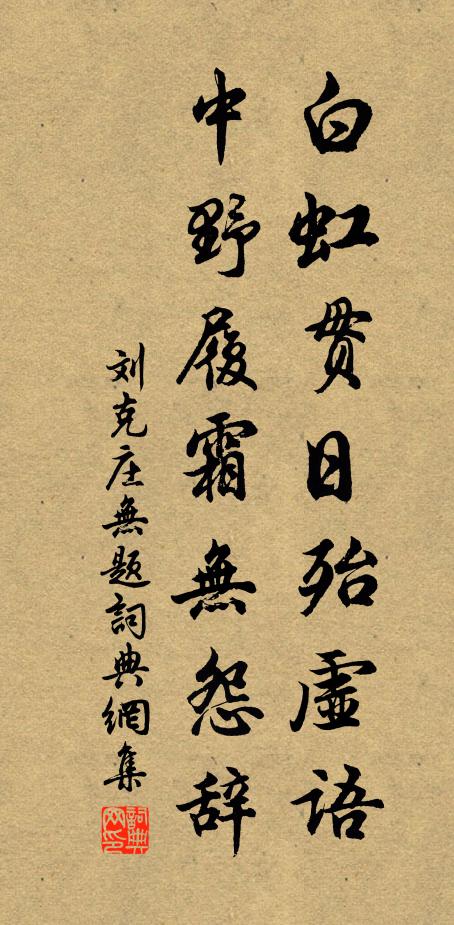 白虹贯日殆虚語
中野履霜無怨辞
刘克庄無题詞典網集
詞典网印